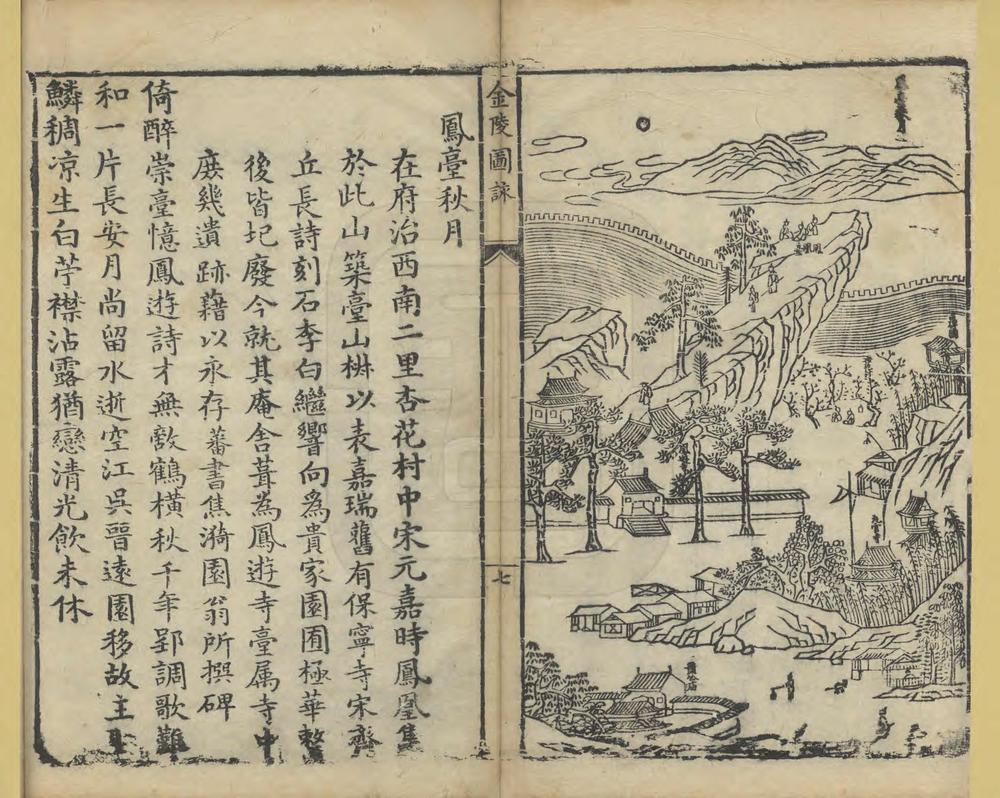 金陵圖詠
七
鳳臺秋月
在府治西南二里杏花村中宋元嘉時鳳凰集
於此山築臺山椒以表嘉瑞舊有保寧寺宋齊
丘長詩刻石李白繼響向爲貴家園囿極華敞
後皆圮廢今就其庵舍葺為鳳遊寺臺屬寺中
庶幾遺跡藉以永存蕃書焦漪園翁所撰碑
倚醉崇臺憶鳳遊詩才無敵鶴橫秋千年郢調歌難
和一片長安月尚留水逝空江吳晉遠園移故主
鱗稠凉生白苧襟沾露猶戀清光飲未休
鳳凰臺